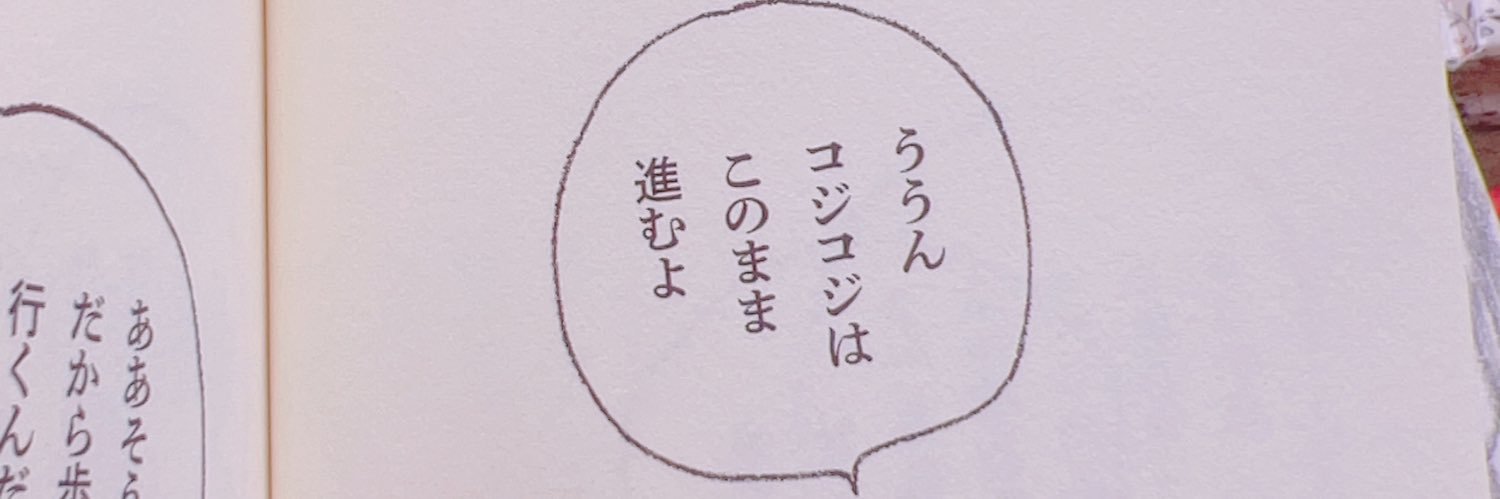 ううん
コジコジは
このまま
進むよ
ああそう
だから歩
行くんだ